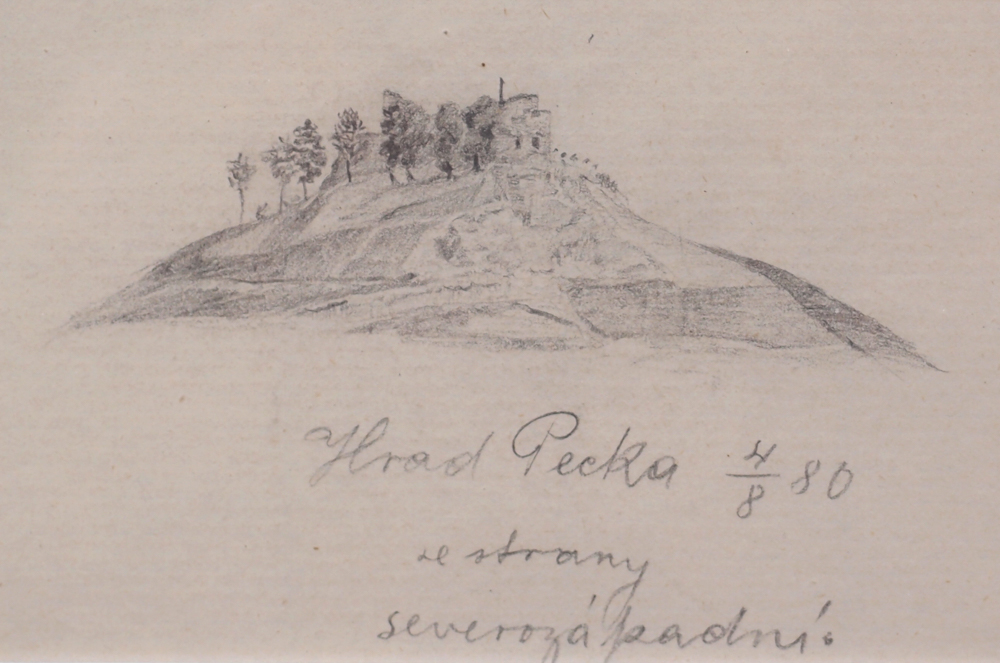 Hrad Pecka 4/8 80
ze strany
severozápadní.